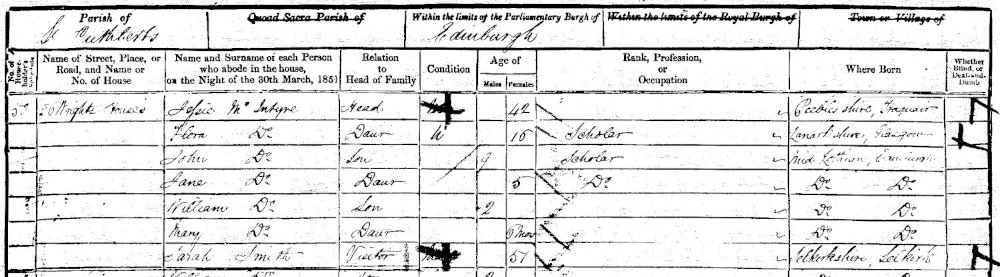 Parish of
St Cuthberts
Quoad Sacra Parish of
Within the limits of the Parliamentary Burgh of
Edinburgh
Within the limits of the Royal Burgh of
Town or Village of
No. of House-holder's Schedule
Name of Street, Place, or Road, and Name or No. of House
Name and Surname of each Person who abode in the house, on the Night of the 30th March, 1851
Relation to Head of Family
Condition
Age of
Males Females
Rank, Profession, or Occupation
Where Born
Whether Blind, or Deaf-and-Dumb
Wrights Houses Jessie Mc Intyre Head 42 Peebles shire, Traquair
Flora Do Daur U 15 Scholar Lanark shire, Glasgow
John Do Son 9 Scholar Mid Lothian, Edinburgh
Jane Do Daur 5 Do Do Do
William Do Son 2 Do Do
Mary Do Daur Mos Do Do
Sarah Smith Visitor 51 Selkirkshire, Selkirk